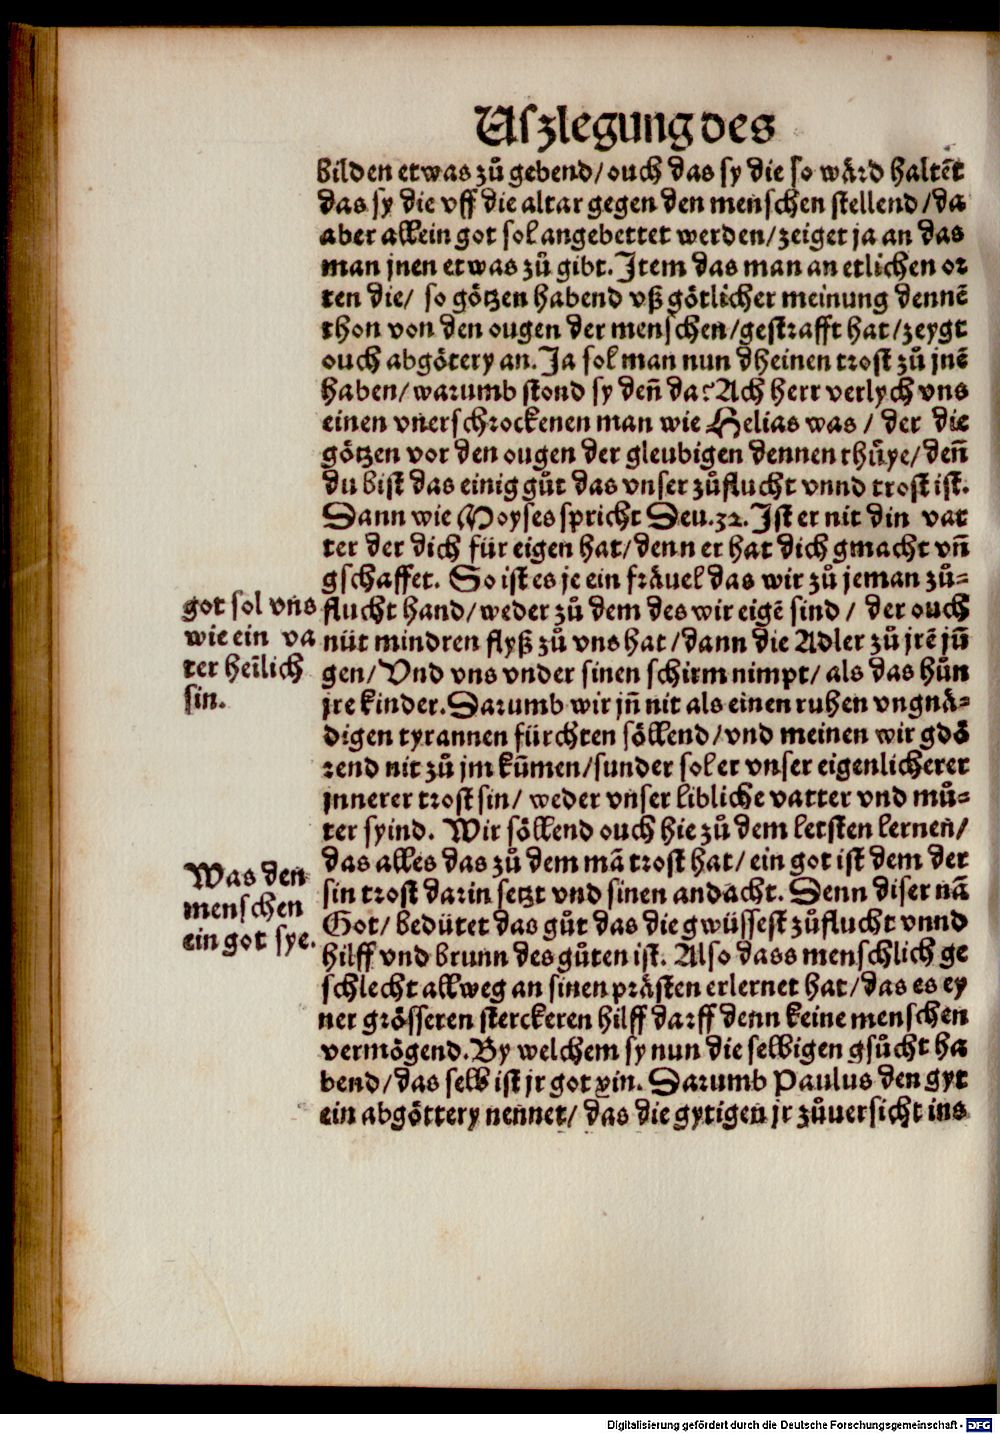 Uſzlegung des
bilden etwas zů gebend/ouch das ſy die ſo wård haltēt
das ſy die vff die altar gegen den menſchen ſtellend/da
aber allein got ſol angebettet werden/zeiget ja an das
man jnen etwas zů gibt. Item das man an etlichen or
ten die/ ſo götzen habend vß götlicher meinung dennē
thon von den ougen der menſchen/geſtrafft hat/zeygt
ouch abgötery an. Ja ſol man nun dheinen troſt zů jnē
haben/warumb ſtond ſy deñ da? Ach herr verlych vns
einen vnerſchrockenen man wie Helias was / der die
götzen vor den ougen der gleubigen dennen thůye/deñ
du biſt das einig gůt das vnſer zůflucht vnnd troſt iſt.
Dann wie Moyſes ſpricht Deu.32. Iſt er nit din vat
ter der dich für eigen hat/denn er hat dich gmacht vñ
gſchaffet. So iſt es je ein fråuel das wir zů jeman zů-
flucht hand/weder zů dem des wir eigē ſind / der ouch
nüt mindren flyß zů vns hat/dann die Adler zů jrē jū
gen/Vnd vns vnder ſinen ſchirm nimpt/ als das hůn
jre kinder. Darumb wir jñ nit als einen ruhen vngnå-
digen tyrannen fürchten ſöllend/vnd meinen wir gdö
rend nit zů jm kūmen/ſunder ſol er vnſer eigenlicherer
jnnerer troſt ſin/ weder vnſer libliche vatter vnd můt-
ter ſyind. Wir ſöllend ouch hie zů dem letſten lernen/
das alles das zů dem mā troſt hat/ ein got iſt dem der
ſin troſt darin ſetzt vnd ſinen andacht. Denn diſer nā
Got/ bedütet das gůt das die gwüſſeſt zůflucht vnnd
hilff vnd brunn des gůten iſt. Alſo dass menſchlich ge
ſchlecht allweg an ſinen präſten erlernet hat/das es ey
ner gröſſeren ſterckeren hilff darff denn keine menſchen
vermögend. By welchem ſy nun die ſelbigen gſůcht ha
bend/das ſelb iſt jr got gin. Darumb Paulus den gyt
ein abgöttery nennet/ das die gytigen jr zůuerſicht ins
got ſol vns
wie ein va
ter heīlich
ſin.
Was den
menſchen
ein got ſye.
Digitalisierung gefördert durch die Deutsche Forschungsgemeinschaft - DFG